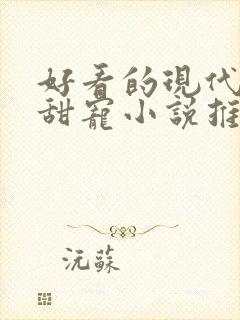 好看的現代
甜寵小說推
沅蘇